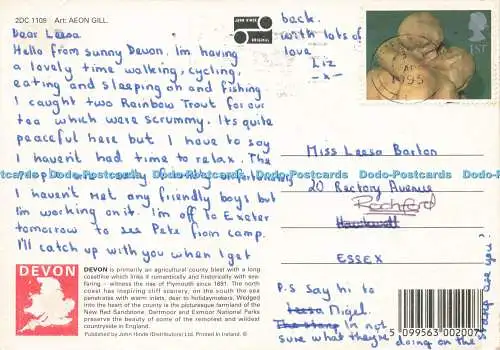 2DC 1108 Art: AEON GILL.
Dear Leesa
Hello from sunny Devon. I'm having
a lovely time walking, cycling,
eating and sleeping oh and fishing.
I caught two Rainbow Trout for our
tea which were scrummy. Its quite
peaceful here but I have to say
I haven't had time to relax. The
people are really
I haven't met any friendly boys but
I'm working on it. I'm off to Exeter
tomorrow to see Pete from camp.
I'll catch up with you when I get
back.
with lots of
love
Liz
-x-
1ST
1995
Miss Leesa Barton
20 Rectory Avenue
Rochford
ESSEX
P.S say hi to
Leesa Nigel.
The stamp Im not
sure what they're doing on the
stamp are you?
DEVON
DEVON is primarily an agricultural county blest with a long
coastline which links it romantically and historically with sea-
faring - witness the rise of Plymouth since 1691. The north
coast has inspiring cliff scenery, on the south the sea
penetrates with warm inlets, dear to holidaymakers. Wedged
into the heart of the county is the picturesque farmland of the
New Red Sandstone. Dartmoor and Exmoor National Parks
preserve the beauty of some of the remotest and wildest
countryside in England.
Published by John Hinde (Distributors) Ltd. Printed in Ireland. ©
5 099563 002007
Dodo-Postcards Dodo-Postcards Dodo-Postcards Dodo-Postcards Dodo-Postcards